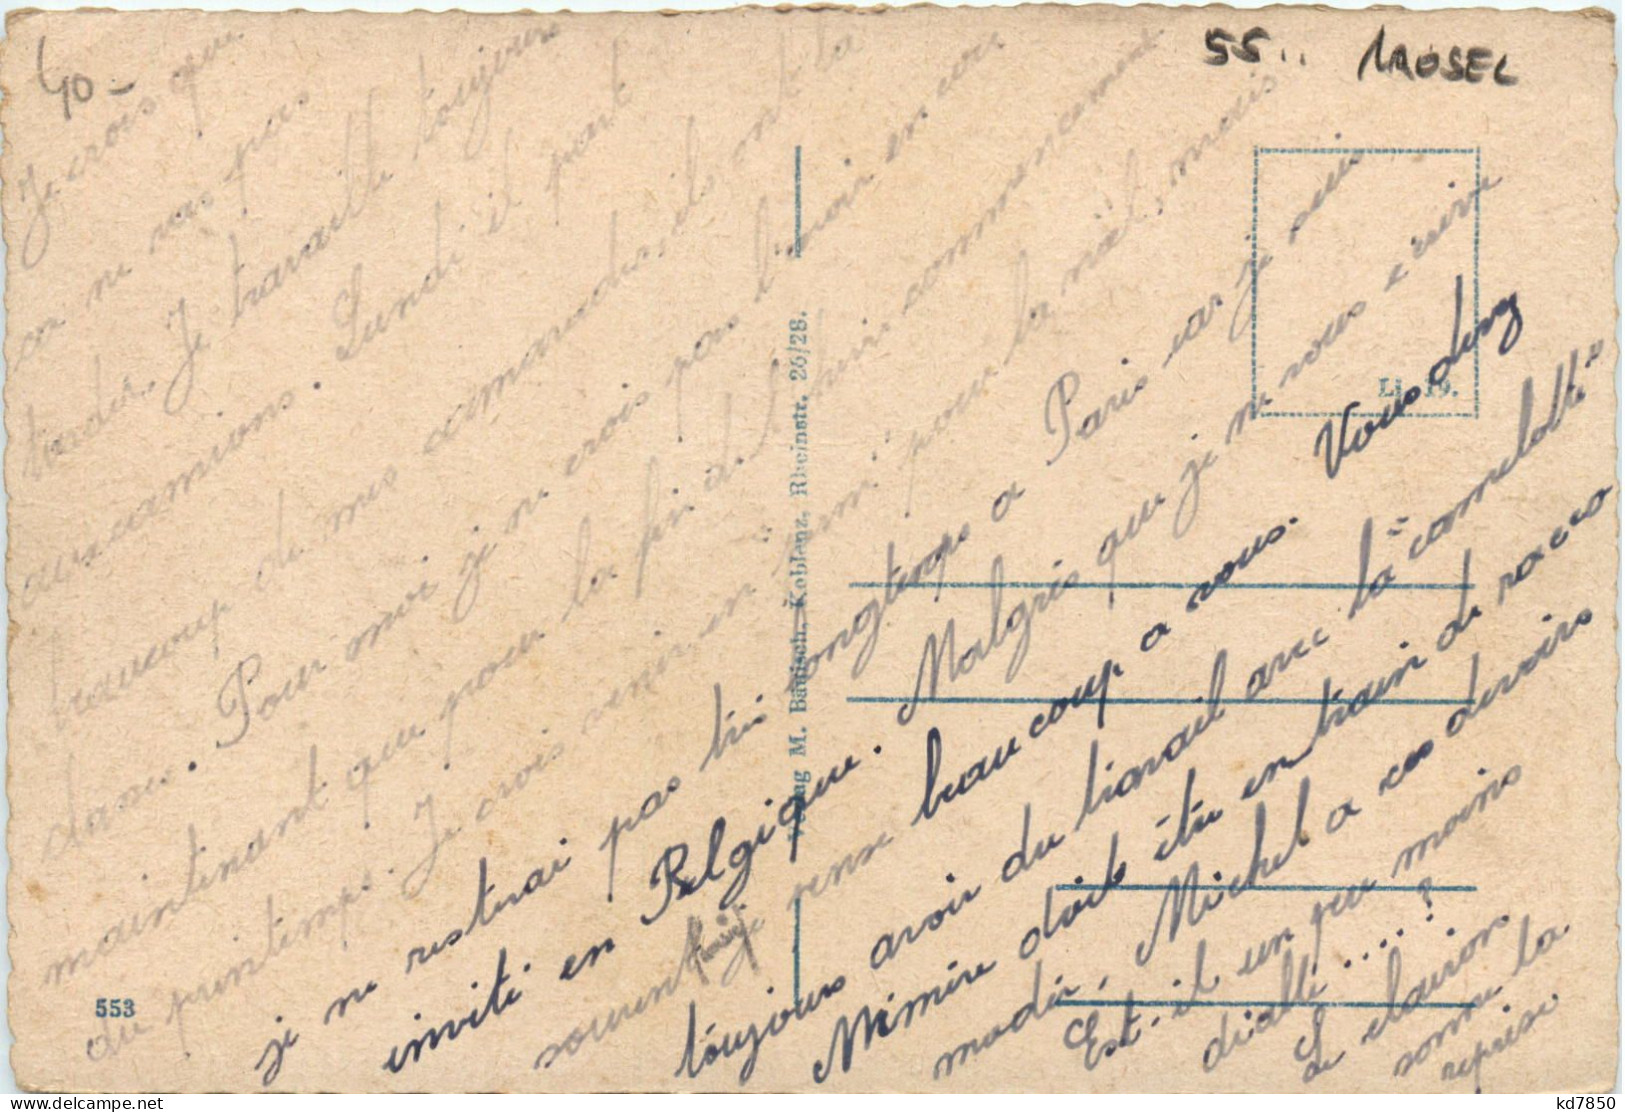 40-
55.. MOSEL
Je crois que
ca ne vas pas
tarder. Je travaille toujours
aux camions. Lundi il part
beaucoup de mes camarades, ils ont la
danse. Pour moi je ne crois pas l'avoir encore
maintenant que pour la fin de l'hiver commencement
du printemps. Je crois venir en permi pour la noël, mais
je ne resterai pas très longtemps a Paris car je suis
invité en Belgique. Malgrés que je ne vous écrive
souvent je pense beaucoup a vous. Vous devez
toujours avoir du travail avec la "camelotte"
Mémère doit être en train de racco
moder, Michel a ces devoirs
Est-il un peu moins
diable....?
Le clairon
sonne la
reprise
Verlag M. Bahisch, Koblenz, Rheinstr. 26/28.
Li. 19.
553
kd7850